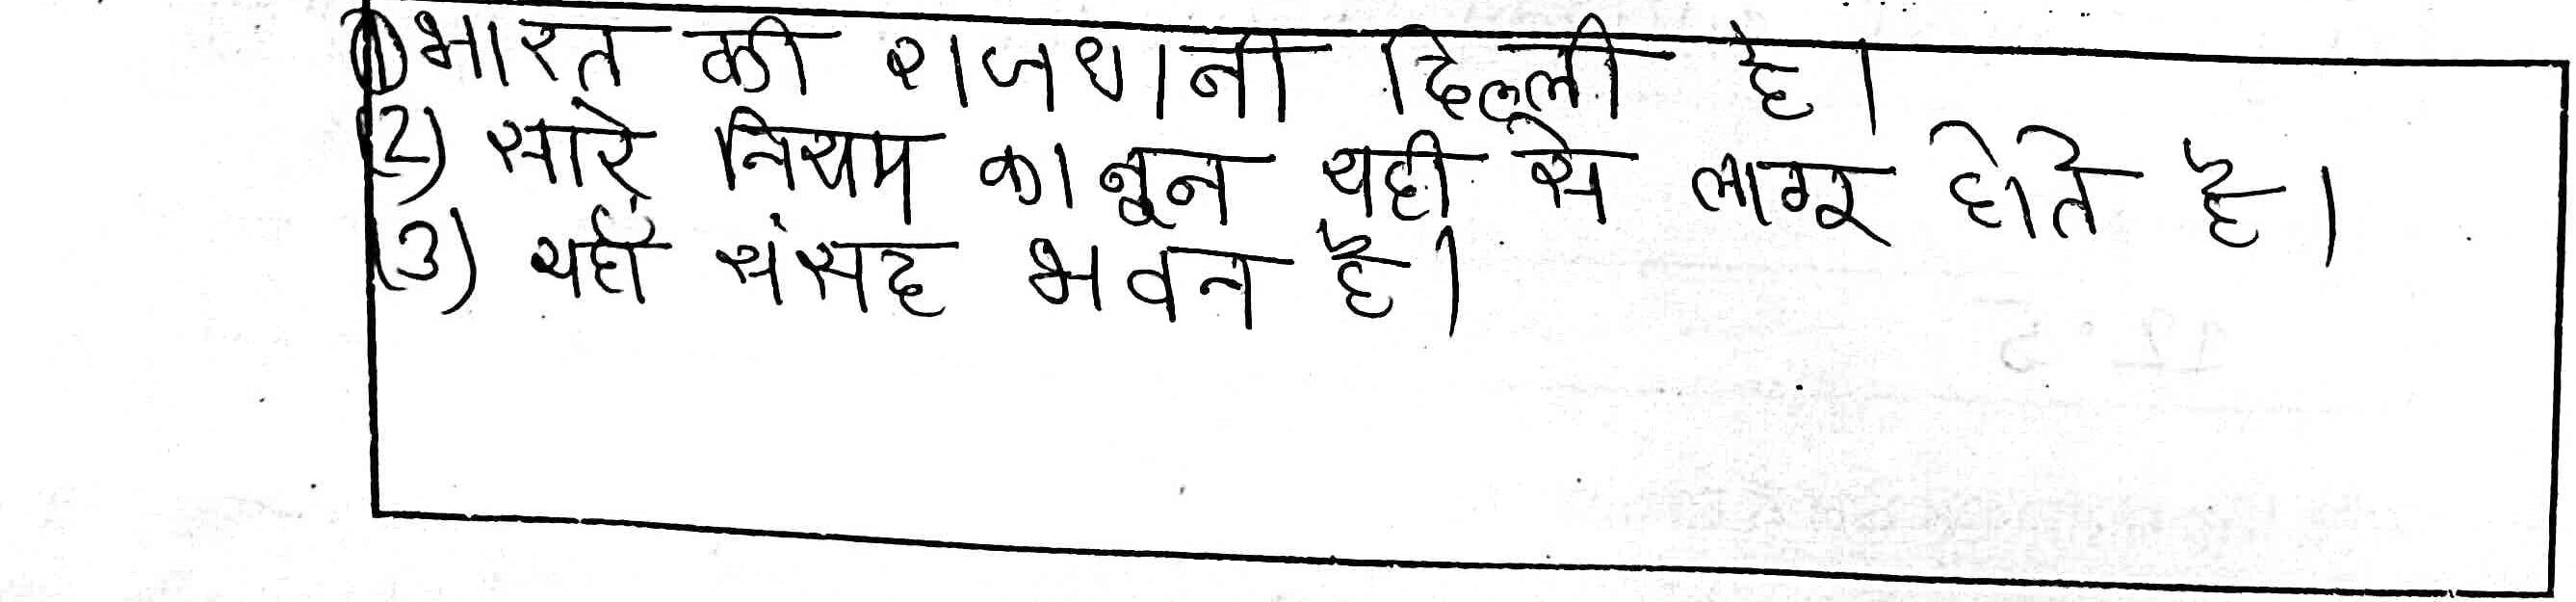 (1) भारत की राजधानी दिल्ली है।
(2) सारे नियम कानून यही से लागू होते है।
(3) यहाँ संसद भवन है।